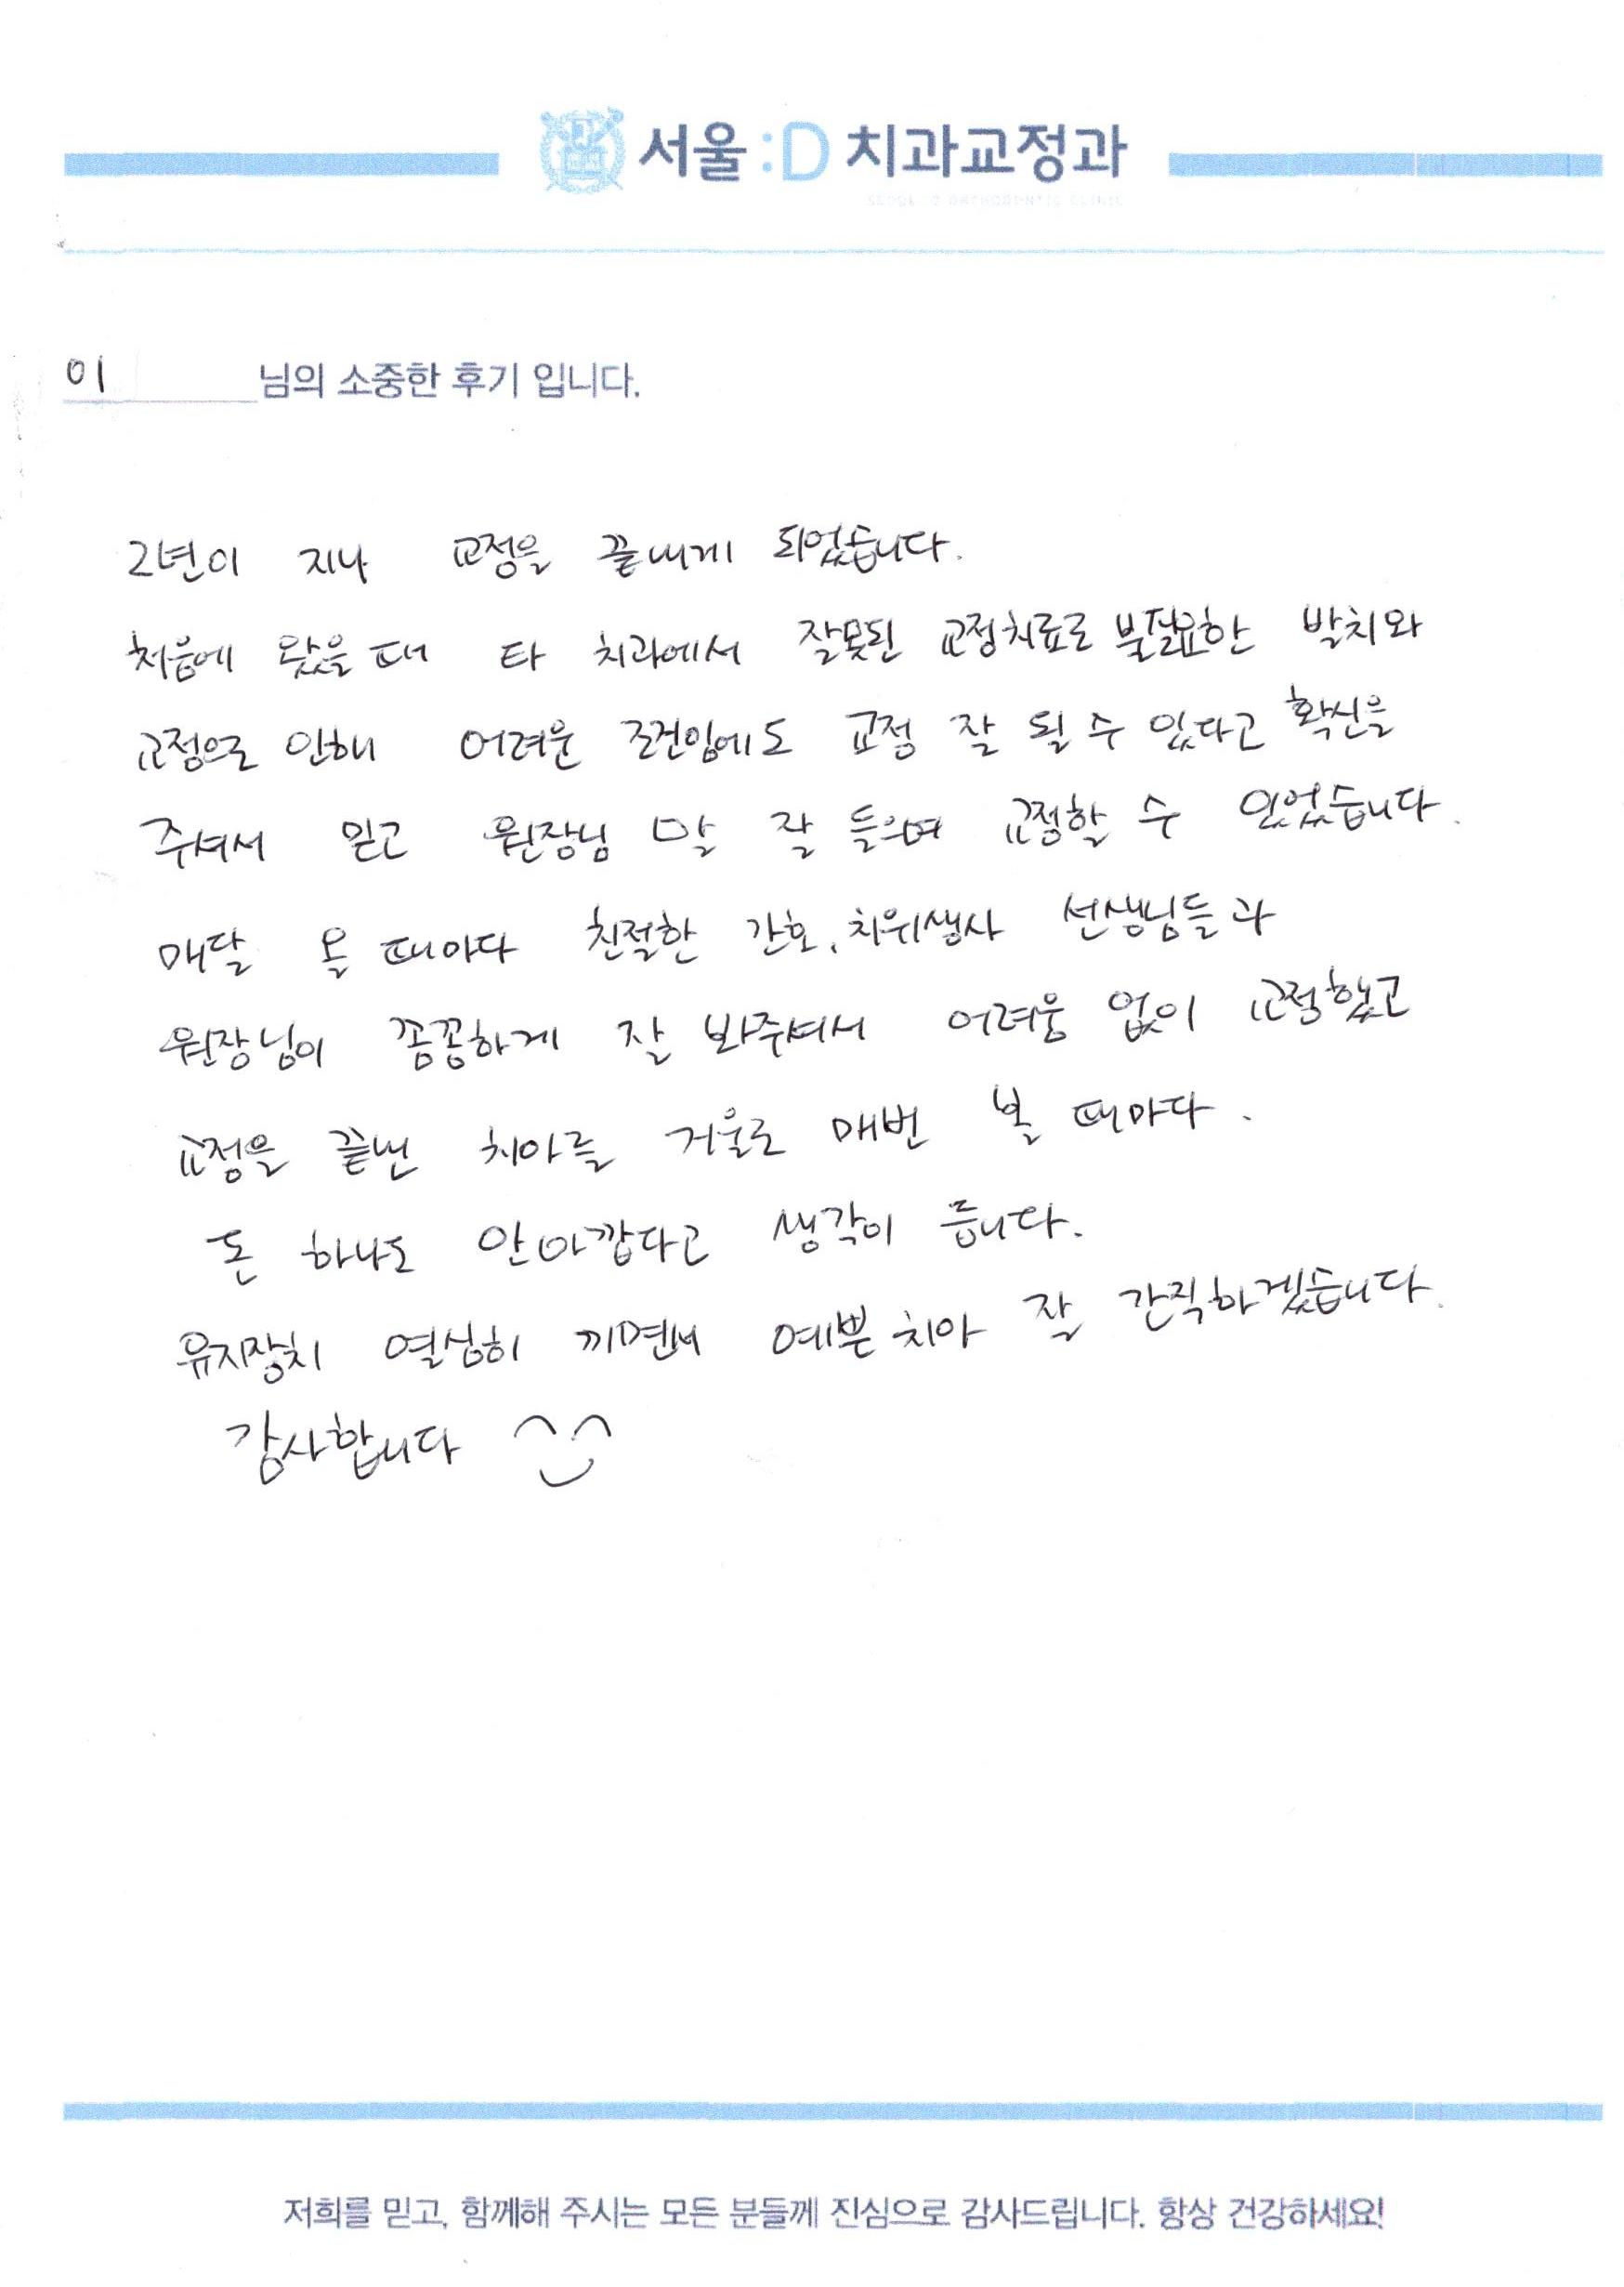 서울:D 치과교정과
SEOUL :D ORTHODONTIC CLINIC
이 님의 소중한 후기 입니다.
2년이 지나 교정을 끝내게 되었습니다.
처음에 왔을때 타 치과에서 잘못된 교정치료로 불필요한 발치와
교정으로 인해 어려운 조건임에도 교정 잘 될 수 있다고 확신을
주셔서 믿고 원장님 말 잘 들으며 교정할 수 있었습니다.
매달 올 때마다 친절한 간호, 치위생사 선생님들과
원장님이 꼼꼼하게 잘 봐주셔서 어려움 없이 교정했고
교정을 끝낸 치아를 거울로 매번 볼 때마다.
돈 하나도 안아깝다고 생각이 듭니다.
유지장치 열심히 끼면서 예쁜 치아 잘 간직하겠습니다.
감사합니다
저희를 믿고, 함께해 주시는 모든 분들께 진심으로 감사드립니다. 항상 건강하세요!